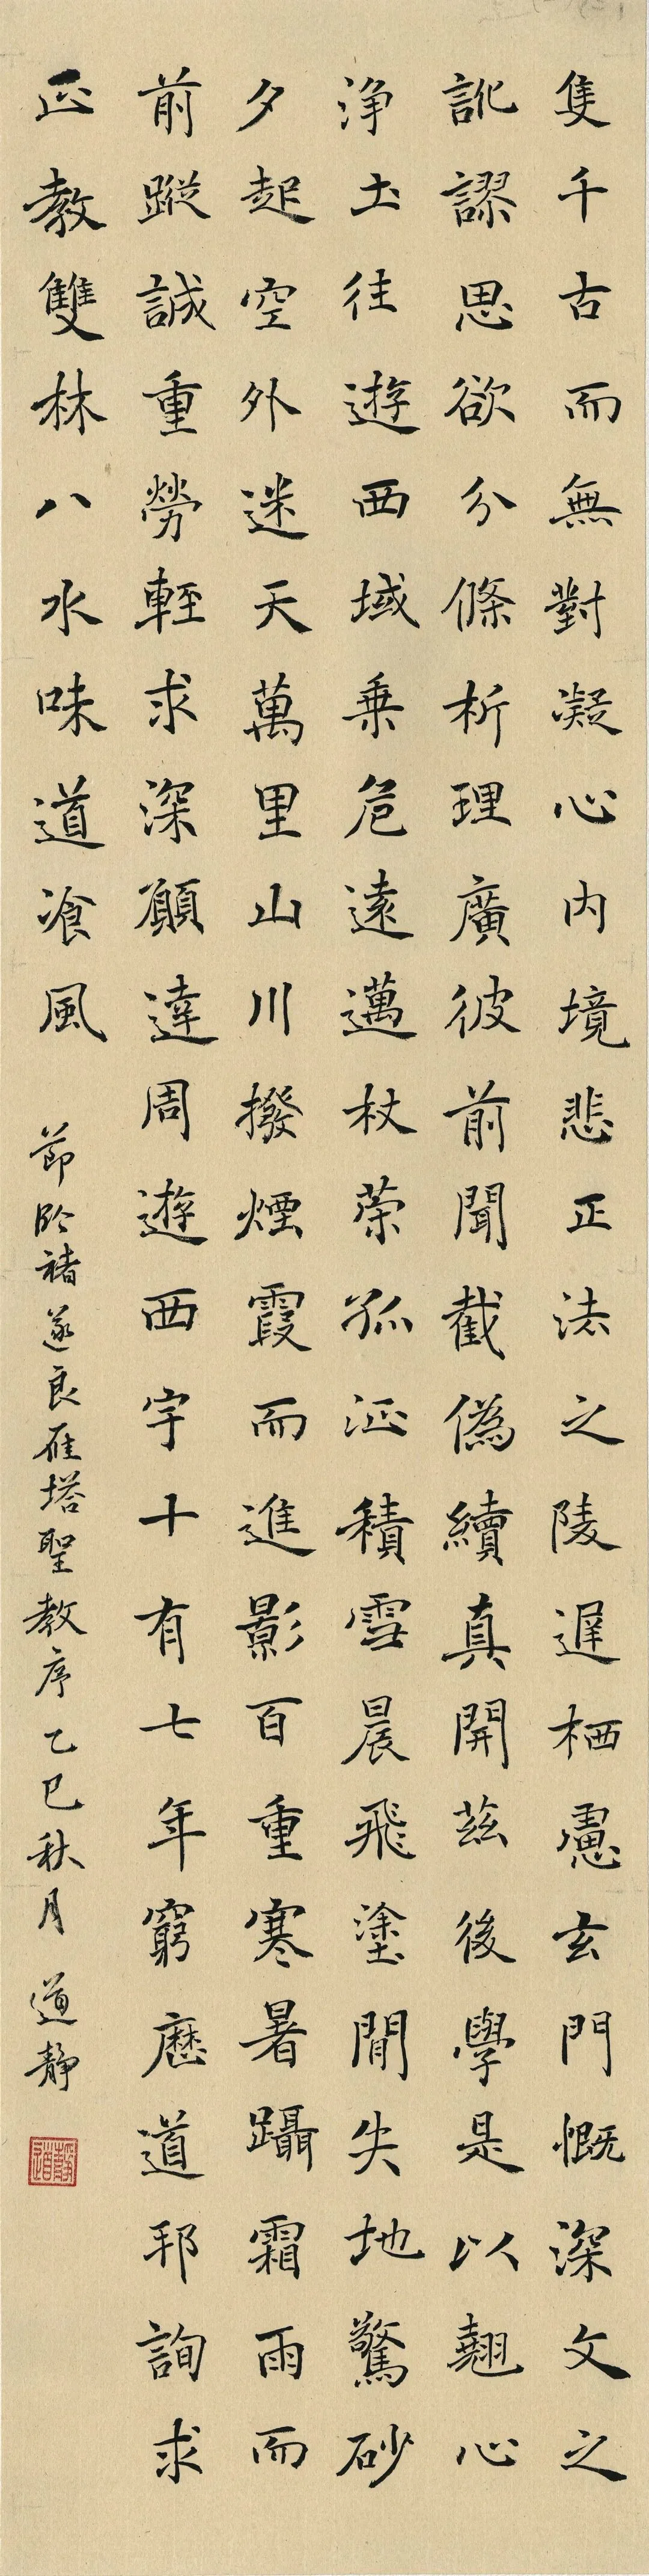 隻千古而無對凝心內境悲正法之陵遲栖慮玄門慨深文之
訛謬思欲分條析理廣彼前聞截偽續真開茲後學是以翹心
淨土往遊西域乗危遠邁杖榮孤征積雪晨飛塗閒失地驚砂
夕起空外迷天萬里山川撥煙霞而進影百重寒暑躡霜雨而
前蹤誠重勞輕求深願達周遊西宇十有七年窮歷道邦詢求
正教雙林八水味道飡風
節臨褚遂良雁塔聖教序乙巳秋月 道靜
道靜